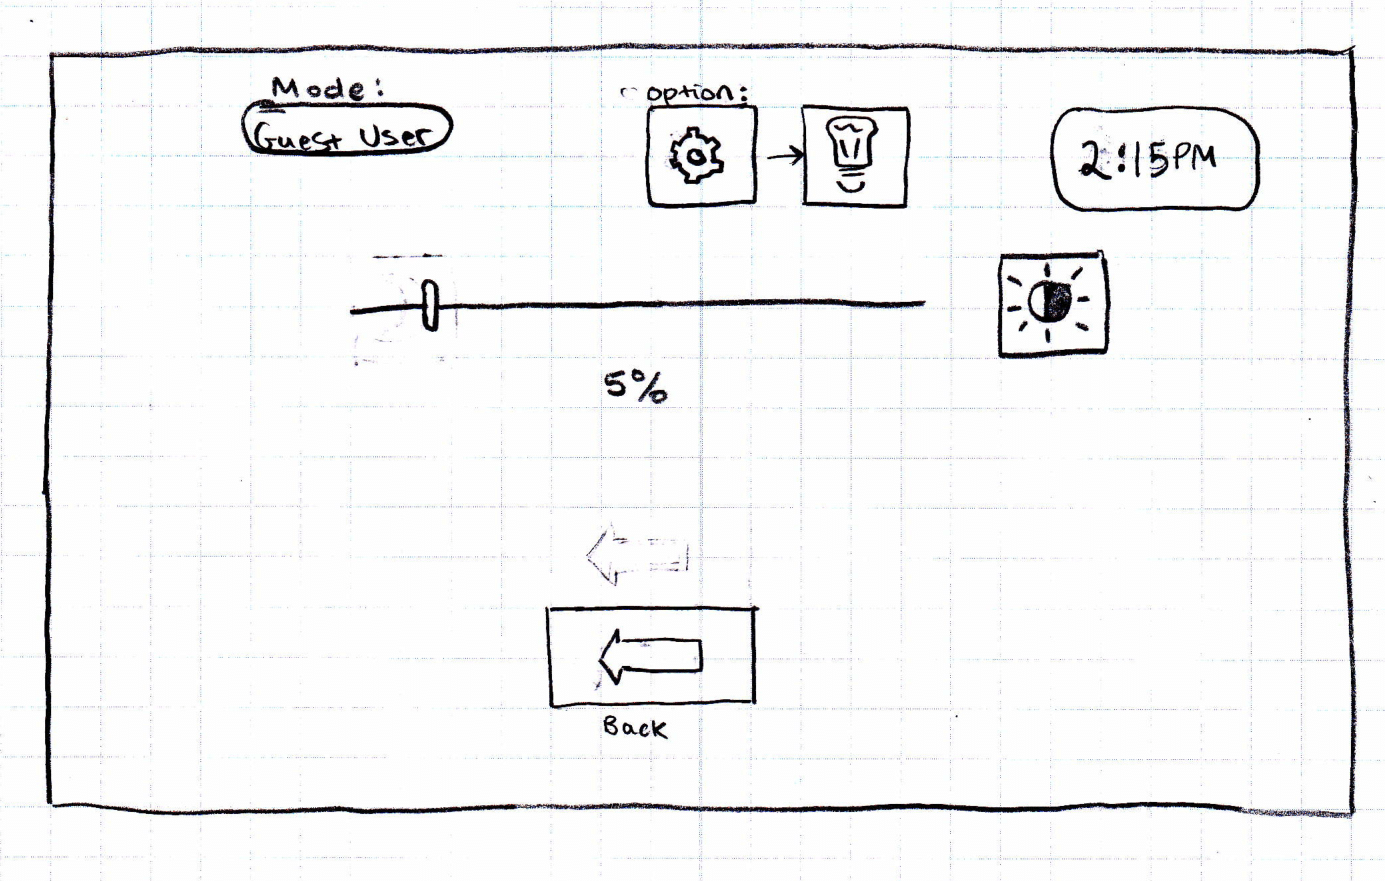 Mode:
Guest User
option:
2:15PM
5%
Back